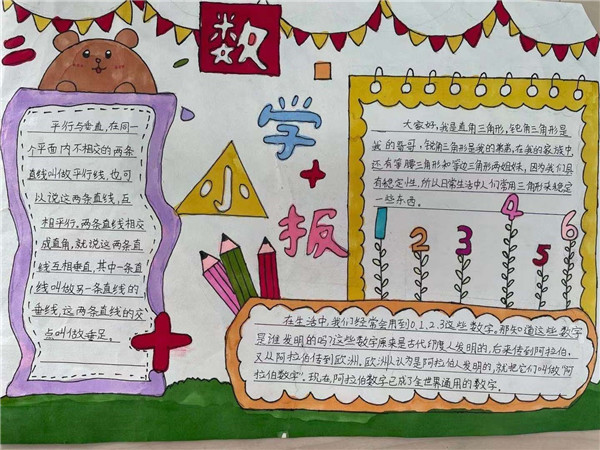 数
学
小
报
平行与垂直,在同一
个平面内不相交的两条
直线叫做平行线,也可
以说这两条直线,互
相平行。两条直线相交
成直角,就说这两条直
线互相垂直,其中一条直
线叫做另一条直线的
垂线,这两条直线的交
点叫做垂足。
大家好,我是直角三角形,钝角三角形是
我的哥哥,锐角三角形是我的弟弟,在我的家族中,
还有等腰三角形和等边三角形两姐妹,因为我们具
有稳定性,所以日常生活中人们常用三角形来稳定
一些东西。
1 2 3 4 5 6
在生活中,我们经常会用到0.1.2.3这些数字,那知道这些数字
是谁发明的吗?这些数字原来是古代印度人发明的,后来传到阿拉伯,
又从阿拉伯传到欧洲。欧洲人认为是阿拉伯人发明的,就把它们叫做“阿
拉伯数字”。现在,阿拉伯数字已成了全世界通用的数字。